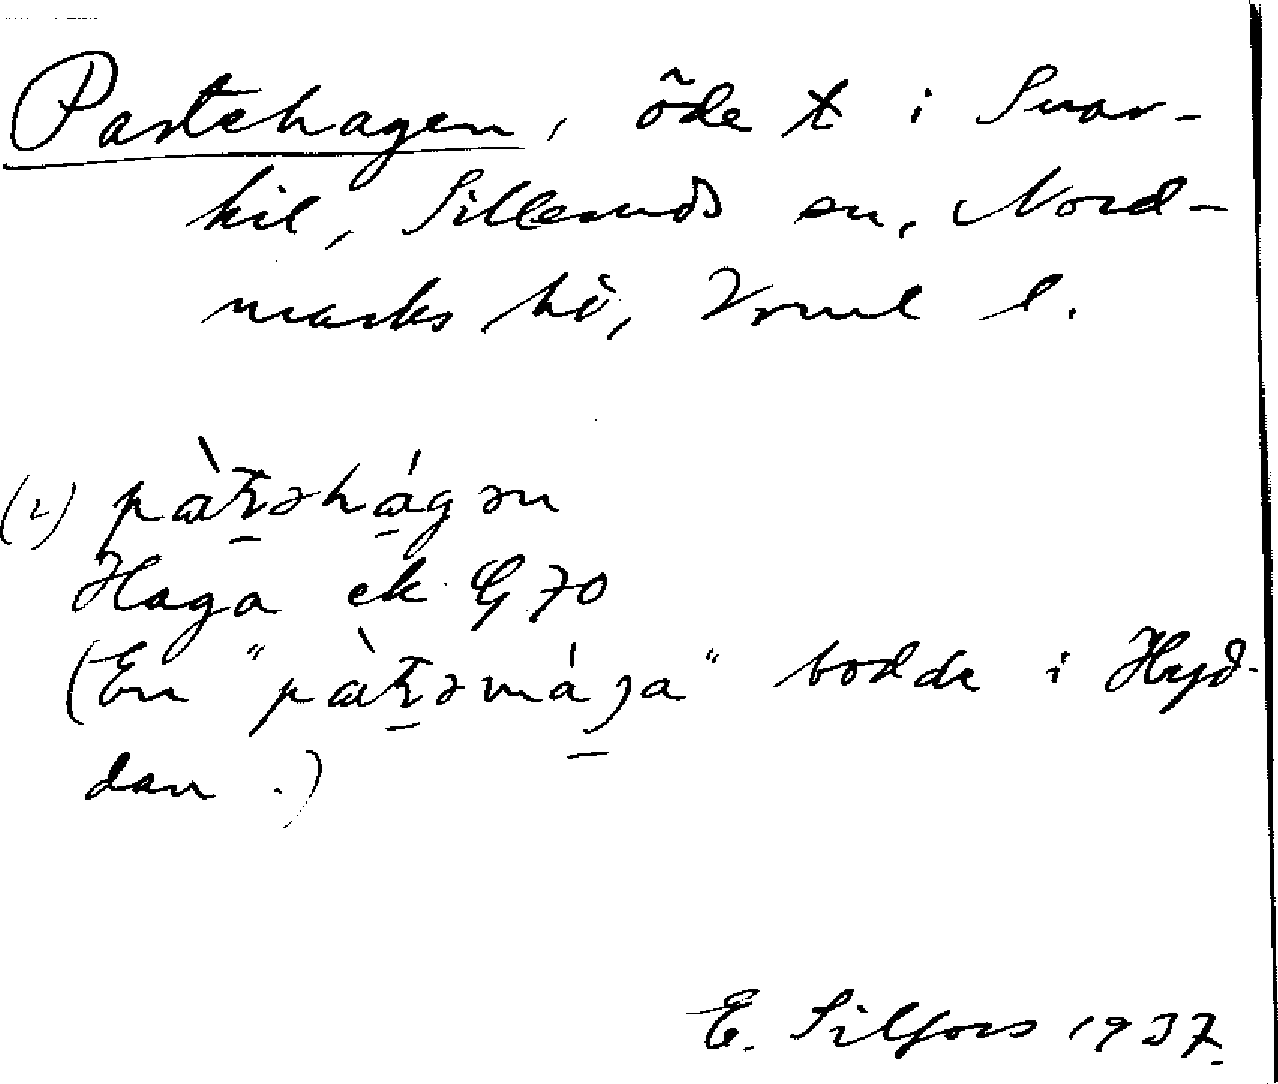 Partehagen, öde t i Svar-
kil, Silleruds sn, Nord-
marks hd, Vrml l.
(2) pàʈəhágən
Haga ek G 70
(En "pàʈəmája" bodde i Hyd-
dan.)
E. Silfors 1937.